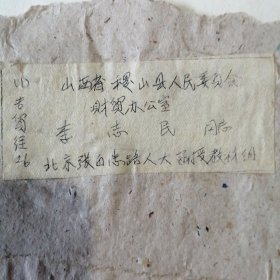 山西省稷山县人民委员会
财贸办公室
李志民 同志
北京张自忠路人大函授教材组